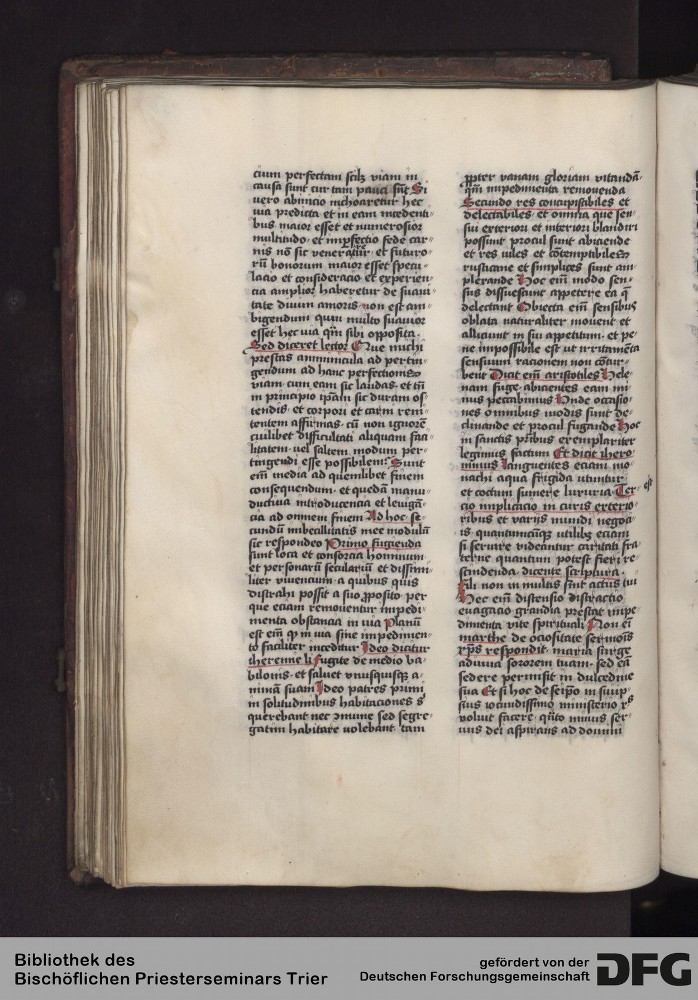 cium perfectam scilz viam in
causa sunt cur tam pauci sūt Si
uero ab inicio inchoaretur hec
via predicta et in eam incedenti-
bus maior esset et numerosior
multitudo et imperfectio sede car-
nis nō sic et futuro-
rū bonorum maior esset specu-
lacio et consideracio et experien-
cia amplior haberetur de suaui-
tate diuini amoris non est am-
bigendum quin multo suauior
esset hec via qm̄ sibi opposita
Sed diceret lector Que michi
prestas amminicula ad pertin-
gendum ad hanc perfectionis
viam cum eam sic laudas et tn̄
in principio ipsam sic duram os-
tendis et corpori et carni reni-
tentem affirmas cū non ignorē
cuilibet difficultati aliquam faci-
litatem vel saltem modum per-
tingendi esse possibilem Sunt
em̄ media ad quemlibet finem
consequendum et quedā manu-
ductiua introducencia et leuigā-
cia ad omnem finem Ad hoc se-
cundū imbecillitatis mee modulū
sic respondeo Primo fugienda
sunt loca et consorcia hominum
et personarū secularium et dissimi-
liter viuencium a quibus quis
distrahi possit a suo ꝓposito per
que eciam remouentur impedi-
menta obstancia in via Planū
est em̄ ꝙ in via sine impedimen-
to faciliter inceditur Ideo dicitur
iheremie li fugite de medio ba-
bilonis et saluet vnusquisqꝫ a-
nimā suam Ideo patres primi
in solitudinibus habitaciones s'
querebant nec ɔmune sed segre-
gatim habitare volebant tam
ꝓpter vanam gloriam vitandā
qm̄ impedimenta remouenda
Secundo res concupiscibiles et
delectabiles et omnia que sen-
sui exteriori et interiori blandiri
possunt procul sunt abiciende
et res viles et cōtemptabiles
rusticane et simplices sunt am-
plexande Hoc em̄ modo sen-
sus dissuescunt appetere ea q̄
delectant Obiecta em̄ sensibus
oblata naturaliter mouent et
alliciunt in sui appetitum et pe-
ne impossibile est vt irritamēta
sensuum racionem non cōtur-
bent Dicit em̄ aristotiles Hele-
nam fuge abicientes eam mi-
nus peccabimus Unde occasio-
nes omnibus modis sunt de-
clinande et procul fugande Hoc
in sanctis pr̄ibus exemplariter
legimus factum Et dicit ihero-
nimus languentes eciam mo-
nachi aqua frigida vtuntur
et coctum sumere luxuria est Ter-
cio implicacio in curis exterio-
ribus et varijs mundi negoci-
is quantumcūqꝫ vtilibꝫ eciam
si seruire videantur caritati fra-
terne quantum potest fieri re-
scindenda dicente scriptura
Fili non in multis sint actus tui
Hec em̄ distensio distractio
euagacio grandia prestat impe-
dimenta vite spirituali Non em̄
marthe de ociositate sermonis
xp̄s respondit maria surge
adiuua sororem tuam sed eā
sedere permisit in dulcedine
sua Et si hoc de ser̄uo in suup-
sius iocundissimo ministerio xp̄s
voluit facere qn̄to minus ser-
uus dei aspirans ad domini
Bibliothek des
Bischöflichen Priesterseminars Trier
gefördert von der
Deutschen Forschungsgemeinschaft
DFG